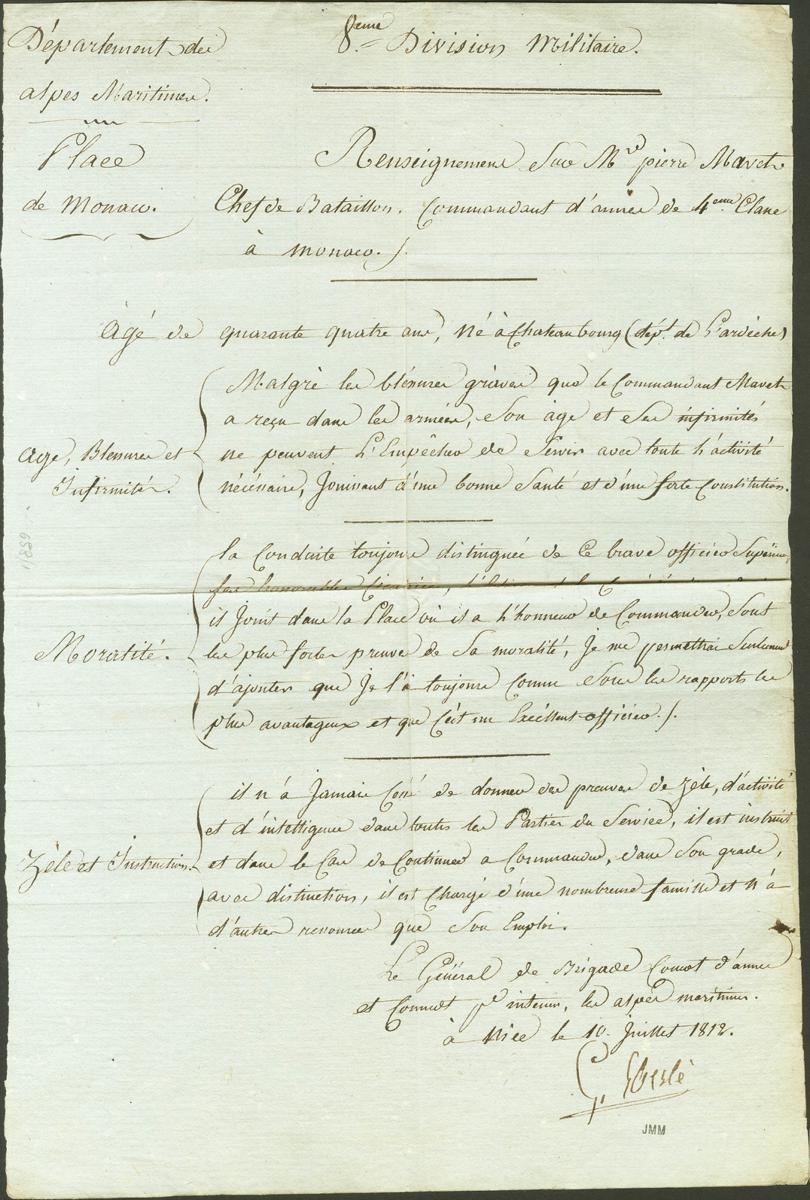 Département des
alpes Maritimes.
Place
de Monaco.
8.eme Division Militaire.
Renseignemens Sur Mr. pierre Mavet
Chef de Bataillon. Commandant d'armes de 4eme Classe
à Monaco./.
agé de quarante quatre ans, Né à Chateaubourg (dépt. de L'ardèche)
age, Blessures et
Infirmités.
Malgré les bléssures graves que le Commandant Mavet
a reçu dans les armées, Son age et Ses infirmités
ne peuvent L'Empêcher de Servir avec toute l'activité
nécéssaire, Jouissant d'une bonne Santé et d'une forte Constitution.
Moralité.
la Conduite toujours distinguée de Ce brave officier Supérieur,
il Jouit dans la Place où il a l'honneur de Commander, Sont
les plus fortes preuves de Sa moralité, Je me permettrai Seulement
d'ajouter que Je l'ai toujours Connu Sous les rapports les
plus avantageux et que C'est un Excéllent officier./.
Zèle et Instruction.
il n'a Jamais Cessé de donner des preuves de Zèle, d'activité
et d'intelligence dans toutes les Parties du Service, il est instruit
et dans le Cas de Continuer a Commander, dans Son grade,
avec distinction, il est Chargé d'une nombreuse famille et n'a
d'autres ressources que Son Emploi.
Le Général de Brigade Commt d'armes
et Commdt pr interim, les alpes maritimes.
à Nice le 10. Juillet 1812.
G. Eberlé
JMM